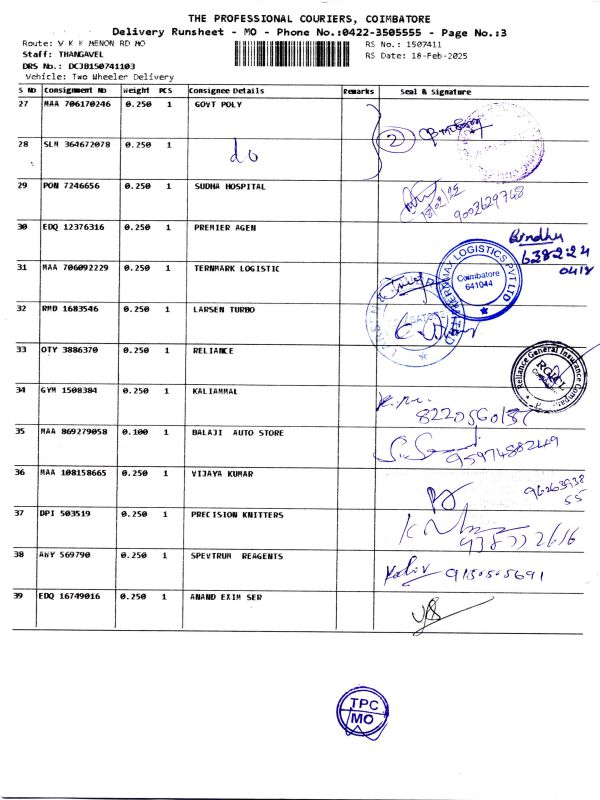 THE PROFESSIONAL COURIERS, COIMBATORE
Delivery Runsheet - MO - Phone No.:0422-3505555 - Page No.:3
Route: V K K MENON RD MO
RS No.: 1507411
Staff: THANGAVEL
RS Date: 18-Feb-2025
DRS No.: DCJB150741103
Vehicle: Two Wheeler Delivery
S No Consignment No Weight PCS Consignee Details Remarks Seal & Signature
27 MAA 706170246 0.250 1 GOVT POLY
2
28 SLM 364672078 0.250 1 do
29 PON 7246656 0.250 1 SUDHA HOSPITAL
18/02/25
9003629748
30 EDQ 12376316 0.250 1 PREMIER AGEN
Bindhu
638224
0418
31 MAA 706092229 0.250 1 TERNMARK LOGISTIC
LOGISTICS PVT LTD
Coimbatore
641044
32 RMD 1683546 0.250 1 LARSEN TURBO
33 OTY 3886370 0.250 1 RELIANCE
Reliance General Insurance Company
RGICL
34 GYM 1508384 0.250 1 KALIAMMAL
35 MAA 869279058 0.100 1 BALAJI AUTO STORE
9597488249
36 MAA 108158665 0.250 1 VIJAYA KUMAR
37 DPI 503519 0.250 1 PRECISION KNITTERS
38 ANY 569790 0.250 1 SPEVTRUM REAGENTS
9150505691
39 EDQ 16749016 0.250 1 ANAND EXIM SER
TPC
MO